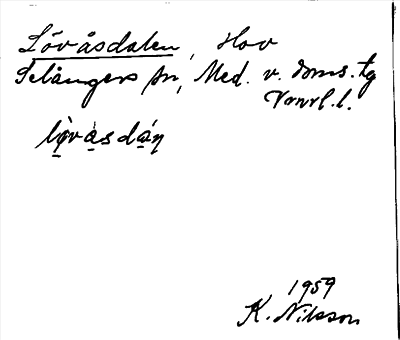 Lövåsdalen, Hov
Selångers sn, Med. v. doms. tg
Vrnrl. l.
lö̀vàsdán
1959
K. Nilsson